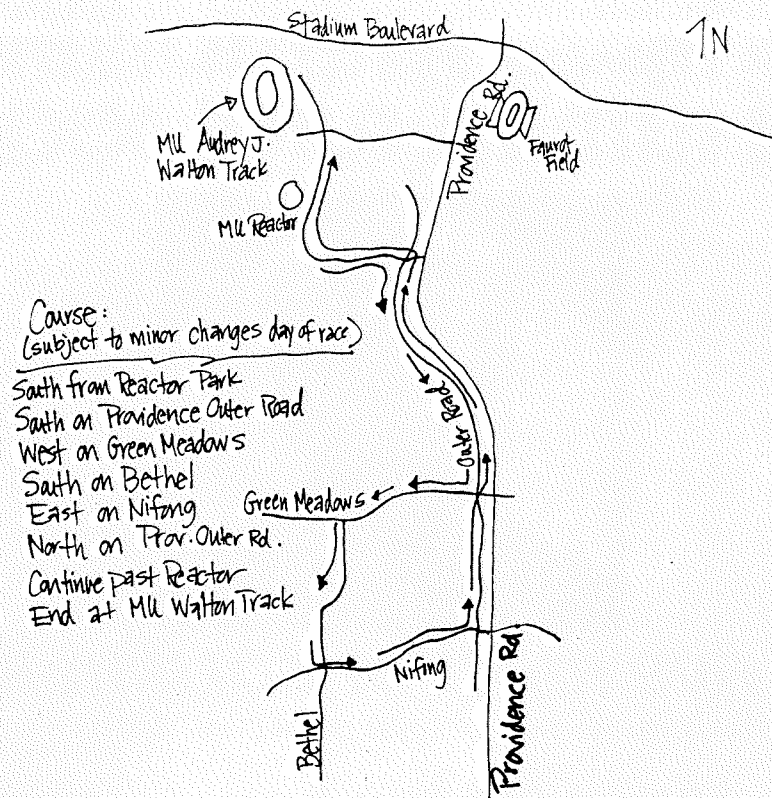 Stadium Boulevard
N
MU Audrey J.
Walton Track
Providence Rd.
Faurot
Field
MU Reactor
Course:
(subject to minor changes day of race)
South from Reactor Park
South on Providence Outer Road
West on Green Meadows
South on Bethel
East on Nifong
North on Prov. Outer Rd.
Continue past Reactor
End at MU Walton Track
Outer Road
Green Meadows
Nifong
Bethel
Providence Rd.